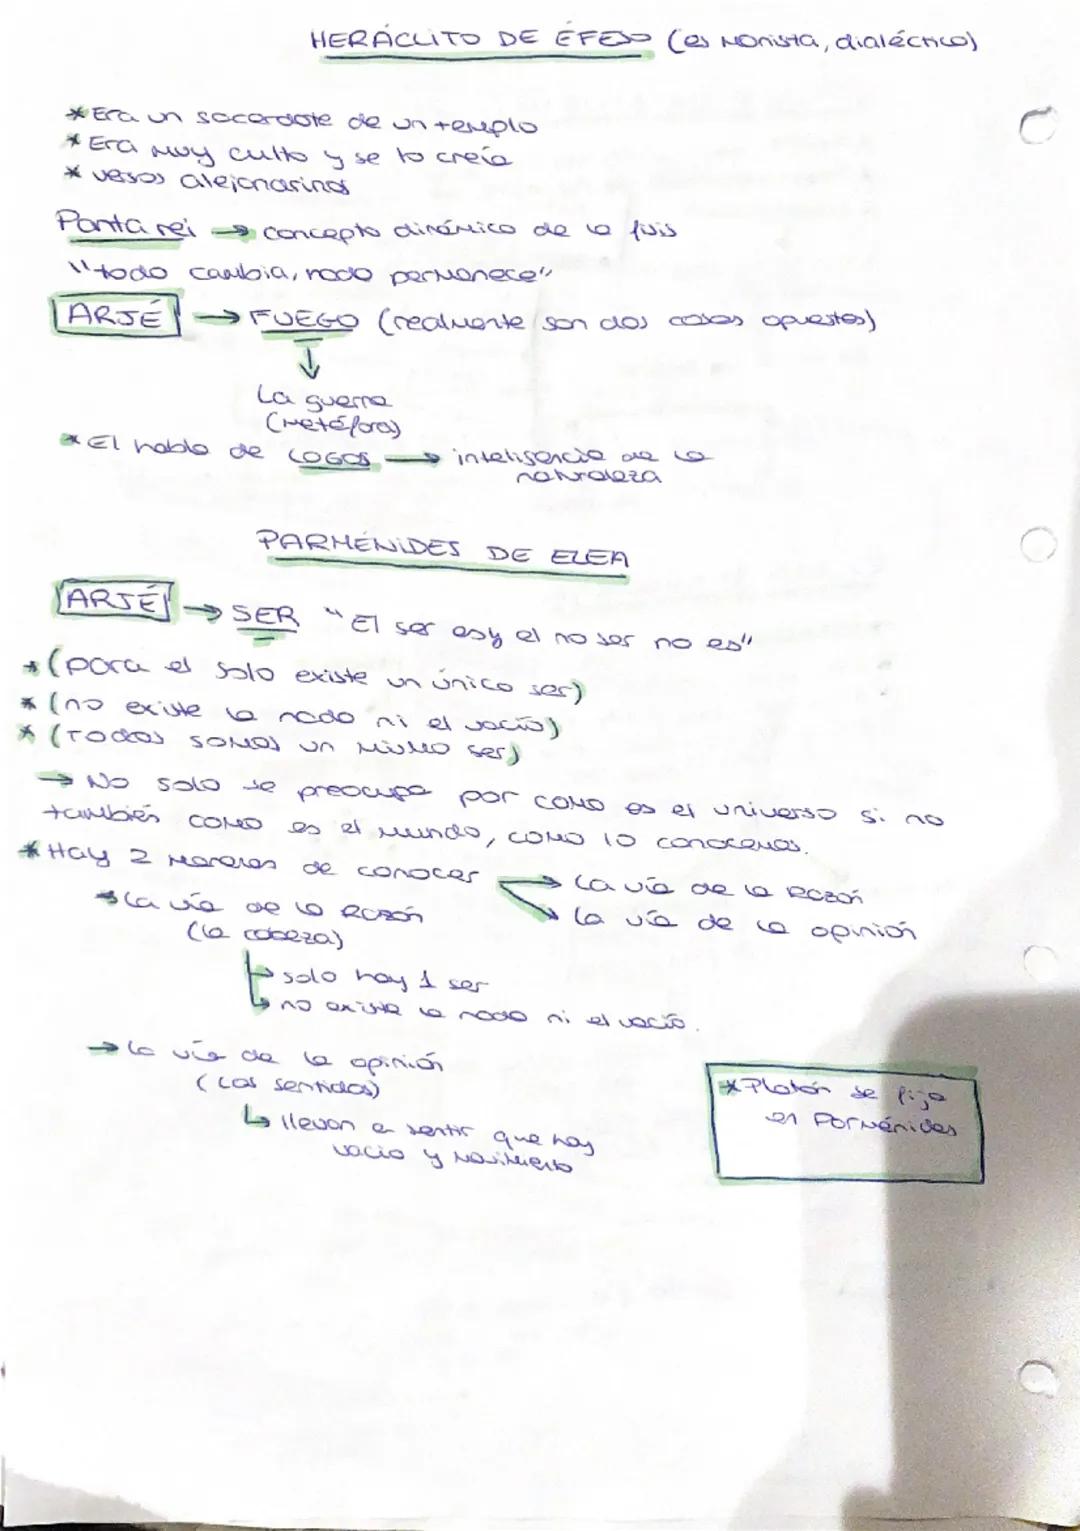 HERÁCLITO DE ÉFESO (es Monista, dialéctico)
* Era un sacerdote de un templo
* Era muy culto y se lo creía
* versos alejandrinos
Panta rei → concepto dinámico de la fisis
"todo cambia, nada permanece"
ARJÉ → FUEGO (realmente son dos cosas opuestas)
↓
La guerra
(metáfora)
* El habla de LOGOS → inteligencia de la
naturaleza
PARMÉNIDES DE ELEA
ARJÉ → SER "El ser es y el no ser no es"
* (para el solo existe un único ser)
* (no existe la nada ni el vacío)
* (Todos somos un mismo ser)
→ No solo se preocupa por como es el universo si no
también como es el mundo, como lo conocemos.
* Hay 2 maneras de conocer → La vía de la Razón
→ la vía de la opinión
→ La vía de la Razón
(la cabeza)
→ solo hay 1 ser
→ no existe la nada ni el vacío.
→ La vía de la opinión
(Los sentidos)
↳ llevan a sentir que hay
vacio y movimiento
* Platón se fija
en Parménides